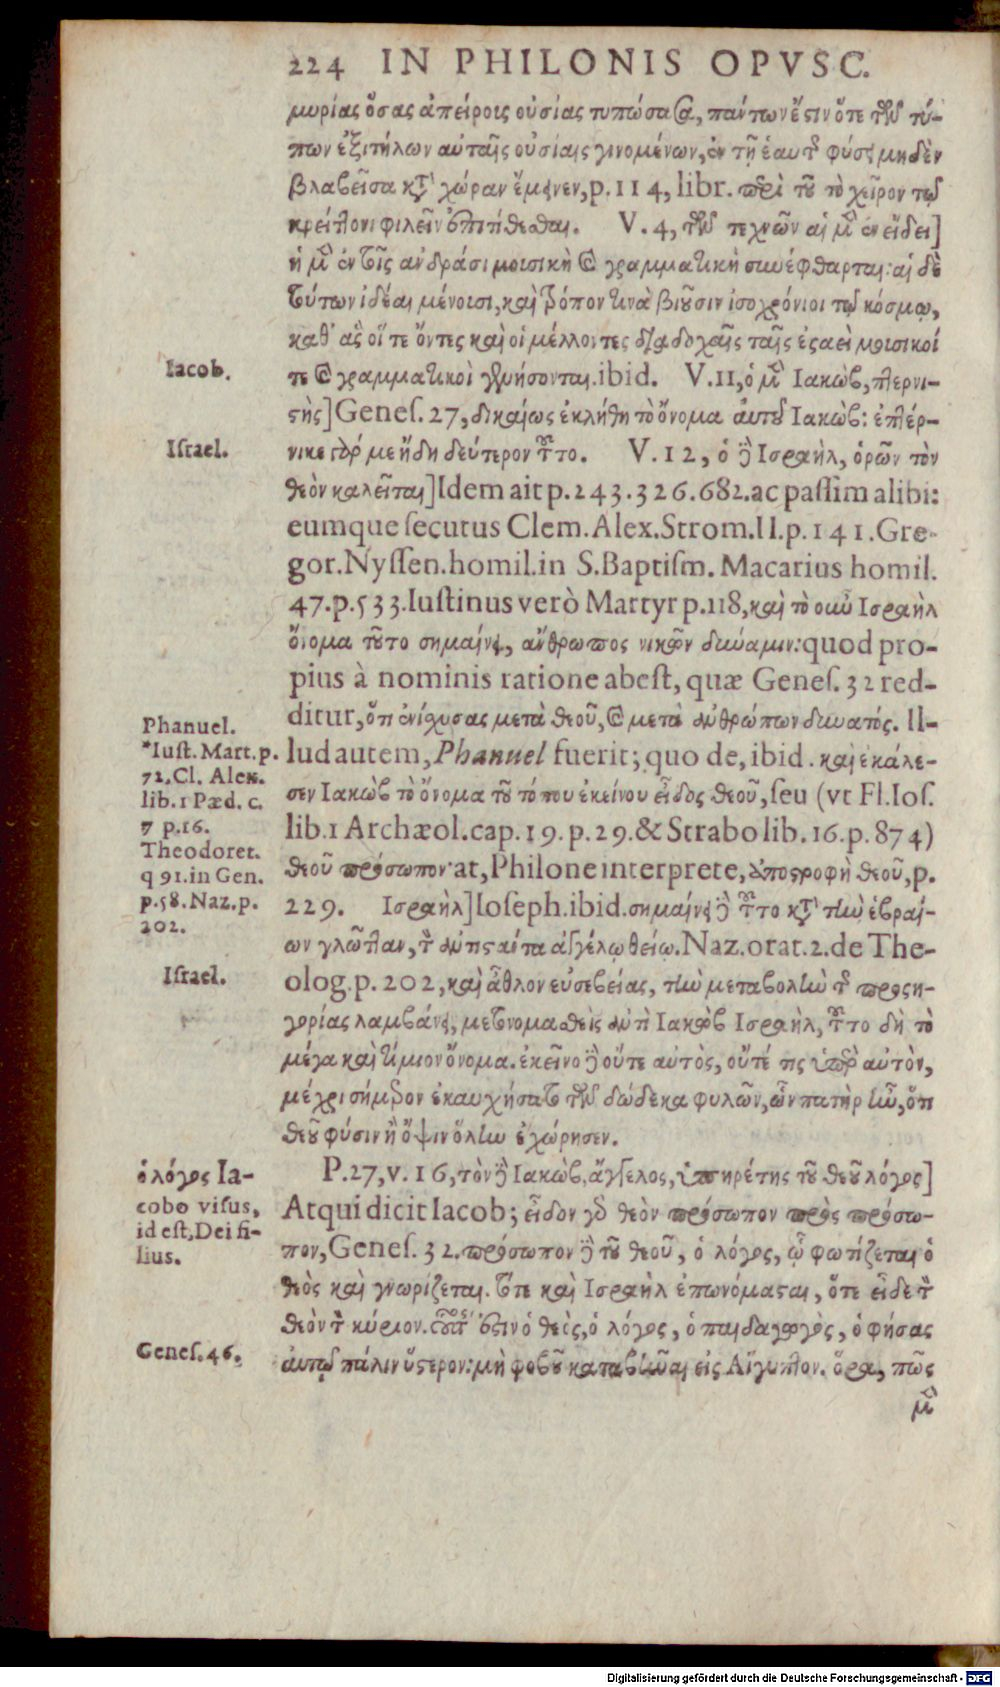 224 IN PHILONIS OPVSC.
μυρίας ὅσας ἀπείροις οὐσίας τυπώσασα, πάντων ἔστιν ὅτε τῶν τύ-
πων ἐξιτήλων αὐταῖς οὐσίαις γινομένων, ἐν τῇ ἑαυτῆς φύσει μηδὲν
βλαβεῖσα κατὰ χώραν ἔμεινεν, p. 114, libr. περὶ τοῦ τὸ χεῖρον τῷ
κρείττονι φιλεῖν ἐπιτίθεσθαι. V. 4, τῶν τεχνῶν αἱ μὲν ἐν εἴδει]
ἡ μὲν ἐν τοῖς ἀνδράσι μουσικὴ καὶ γραμματικὴ συνέφθαρται: αἱ δὲ
τούτων ἰδέαι μένουσι, καὶ τρόπον τινὰ βιοῦσιν ἰσοχρόνιοι τῷ κόσμῳ,
καθ' ἃς οἵ τε ὄντες καὶ οἱ μέλλοντες διαδοχαῖς ταῖς ἐσαεὶ μουσικοί
Iacob.
τε καὶ γραμματικοὶ γενήσονται. ibid. V. 11, ὁ μὲν Ιακὼβ, πτερνι-
στὴς] Geneſ. 27, δικαίως ἐκλήθη τὸ ὄνομα αὐτοῦ Ιακὼβ: ἐπτέρ-
Iſrael.
νικε γάρ με ἤδη δεύτερον τοῦτο. V. 12, ὁ δὲ Ισραὴλ, ὁρῶν τὸν
θεὸν καλεῖται] Idem ait p. 243. 326. 682. ac paſſim alibi:
eumque ſecutus Clem. Alex. Strom. II. p. 141. Gre-
gor. Nyſſen. homil. in S. Baptiſm. Macarius homil.
47. p. 533. Iuſtinus verò Martyr p. 118, καὶ τὸ οὖν Ισραὴλ
ὄνομα τοῦτο σημαίνει, ἄνθρωπος νικῶν δύναμιν: quod pro-
pius à nominis ratione abeſt, quæ Geneſ. 32 red-
ditur, ὅτι ἐνίσχυσας μετὰ θεοῦ, καὶ μετὰ ἀνθρώπων δυνατός. Il-
Phanuel.
*Iuſt. Mart. p.
72. Cl. Alex.
lib. 1 Pæd. c.
7 p. 16.
Theodoret.
q 91. in Gen.
p. 58. Naz. p.
202.
lud autem, Phanuel fuerit; quo de, ibid. καὶ ἐκάλε-
σεν Ιακὼβ τὸ ὄνομα τοῦ τόπου ἐκείνου εἶδος θεοῦ, ſeu (vt Fl. Ioſ.
lib. 1 Archæol. cap. 19. p. 29. & Strabo lib. 16. p. 874)
θεοῦ πρόσωπον· at, Philone interprete, ἀποστροφὴ θεοῦ, p.
229. Ισραὴλ] Ioſeph. ibid. σημαίνει δὲ τοῦτο κατὰ τὴν ἑβραί-
ων γλῶτταν, τὸν ἀντιστάτα ἀγγέλῳ θείῳ. Naz. orat. 2. de The-
Iſrael.
olog. p. 202, καὶ ἆθλον εὐσεβείας, τὴν μεταβολὴν τῆς προση-
γορίας λαμβάνει, μετονομασθεὶς ἀντὶ Ιακὼβ Ισραὴλ, τοῦτο δὴ τὸ
μέγα καὶ τίμιον ὄνομα. ἐκεῖνο δὲ οὔτε αὐτὸς, οὔτέ τις ὑπὲρ αὐτὸν,
μέχρι σήμερον ἐκαυχήσατο τῶν δώδεκα φυλῶν, ὧν πατὴρ ἦν, ὅτι
θεοῦ φύσιν ἢ ὄψιν ὅλην ἐχώρησεν.
ὁ λόγος Ia-
cobo viſus,
id eſt, Dei fi-
lius.
P. 27, v. 16, τὸν δὲ Ιακὼβ, ἄγγελος, ὑπηρέτης τοῦ θεοῦ λόγος]
Atqui dicit Iacob; εἶδον γὰρ θεὸν πρόσωπον πρὸς πρόσω-
πον, Geneſ. 32. πρόσωπον δὲ τοῦ θεοῦ, ὁ λόγος, ᾧ φωτίζεται ὁ
θεὸς καὶ γνωρίζεται. τότε καὶ Ισραὴλ ἐπωνόμασται, ὅτε εἶδε τὸν
θεὸν τὸν κύριον. οὗτός ἐστιν ὁ θεὸς, ὁ λόγος, ὁ παιδαγωγὸς, ὁ φήσας
Geneſ. 46.
αὐτῷ πάλιν ὕστερον: μὴ φοβοῦ καταβῆναι εἰς Αἴγυπτον. ὅρα, πῶς
μὲν
Digitalisierung gefördert durch die Deutsche Forschungsgemeinschaft - DFG